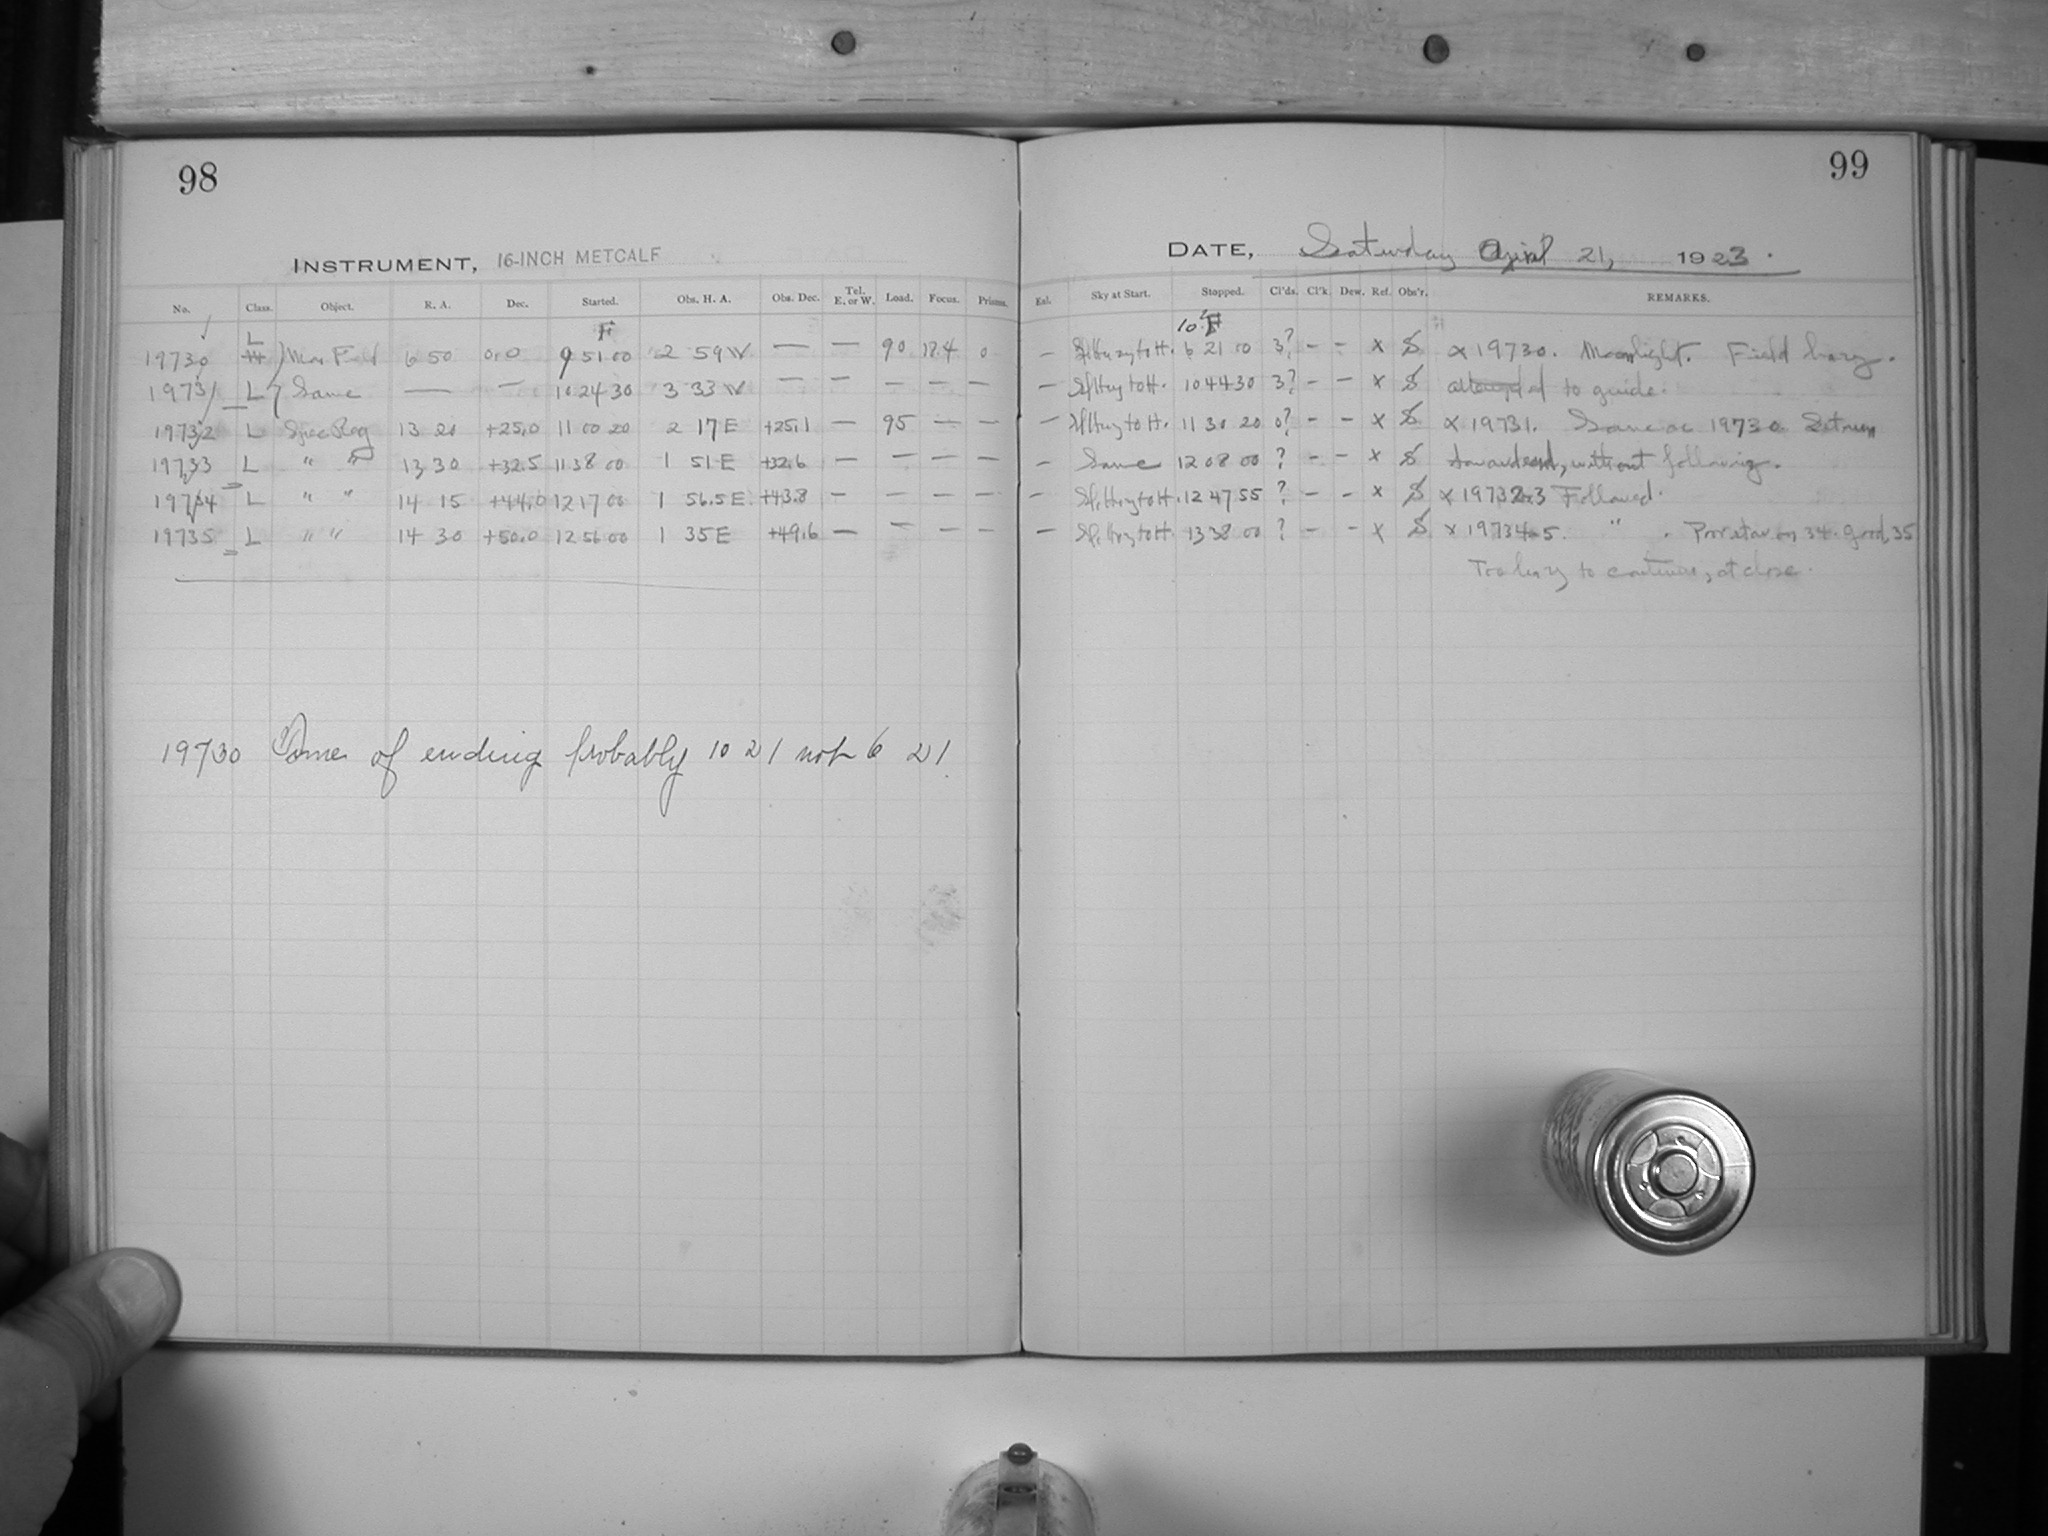 98
INSTRUMENT, 16-INCH METCALF
No. Class. Object. R. A. Dec. Started. Obs. H. A. Obs. Dec. Tel. E. or W. Load. Focus. Prisms.
L F
19730 H Field 6 50 0.0 9 51 00 2 59 W — — 90 12.4 0
19731 L Same — — 10 24 30 3 33 W — — — — —
19732 L Spec Reg 13 20 +25.0 11 00 20 2 17 E +25.1 — 95 — —
19733 L " " 13 30 +32.5 11 38 00 1 51 E +32.6 — — — —
19734 L " " 14 15 +44.0 12 17 00 1 56.5 E +43.8 — — — —
19735 L " " 14 30 +50.0 12 56 00 1 35 E +49.6 — — — —
19730 Time of ending probably 10 21 not 6 21
99
DATE, Saturday April 21, 1923.
Ext. Sky at Start. Stopped. Cl'ds. Cl'k. Dew. Ref. Obs'r. REMARKS.
10 F
— to H. 6 21 00 3? – – x S x 19730. Moonlight. Field hazy.
— to H. 10 44 30 3? – – x S attempted to guide.
— to H. 11 30 20 0? – – x S x 19731. Same as 19730
— Same 12 08 00 ? – – x S without following.
— to H. 12 47 55 ? – – x S x 19732-3 Followed.
— to H. 13 38 00 ? – – x S x 19734-5. " . Poor star on 34. Good, 35
Too hazy to continue, at close.